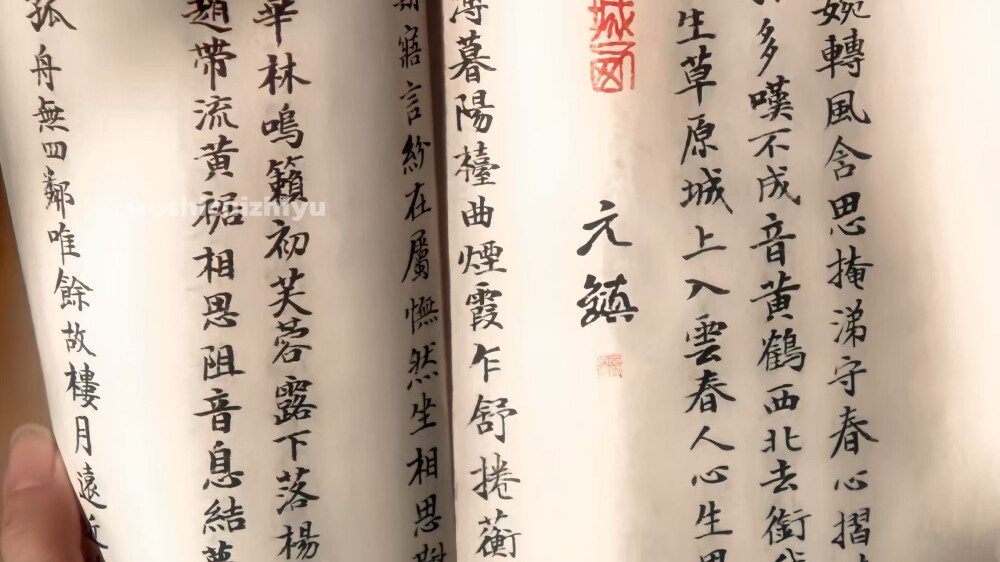 婉轉風含思掩涕守春心摺
多嘆不成音黄鶴西北去銜
生草原城上入雲春人心生思
元鎮
薄暮陽檯曲煙霞乍舒捲蘅
寤言紛在屬憮然坐相思對
華林鳴籟初芙蓉露下落楊
趙帶流黄裾相思阻音息結夢
孤舟無四鄰唯餘故樓月遠近